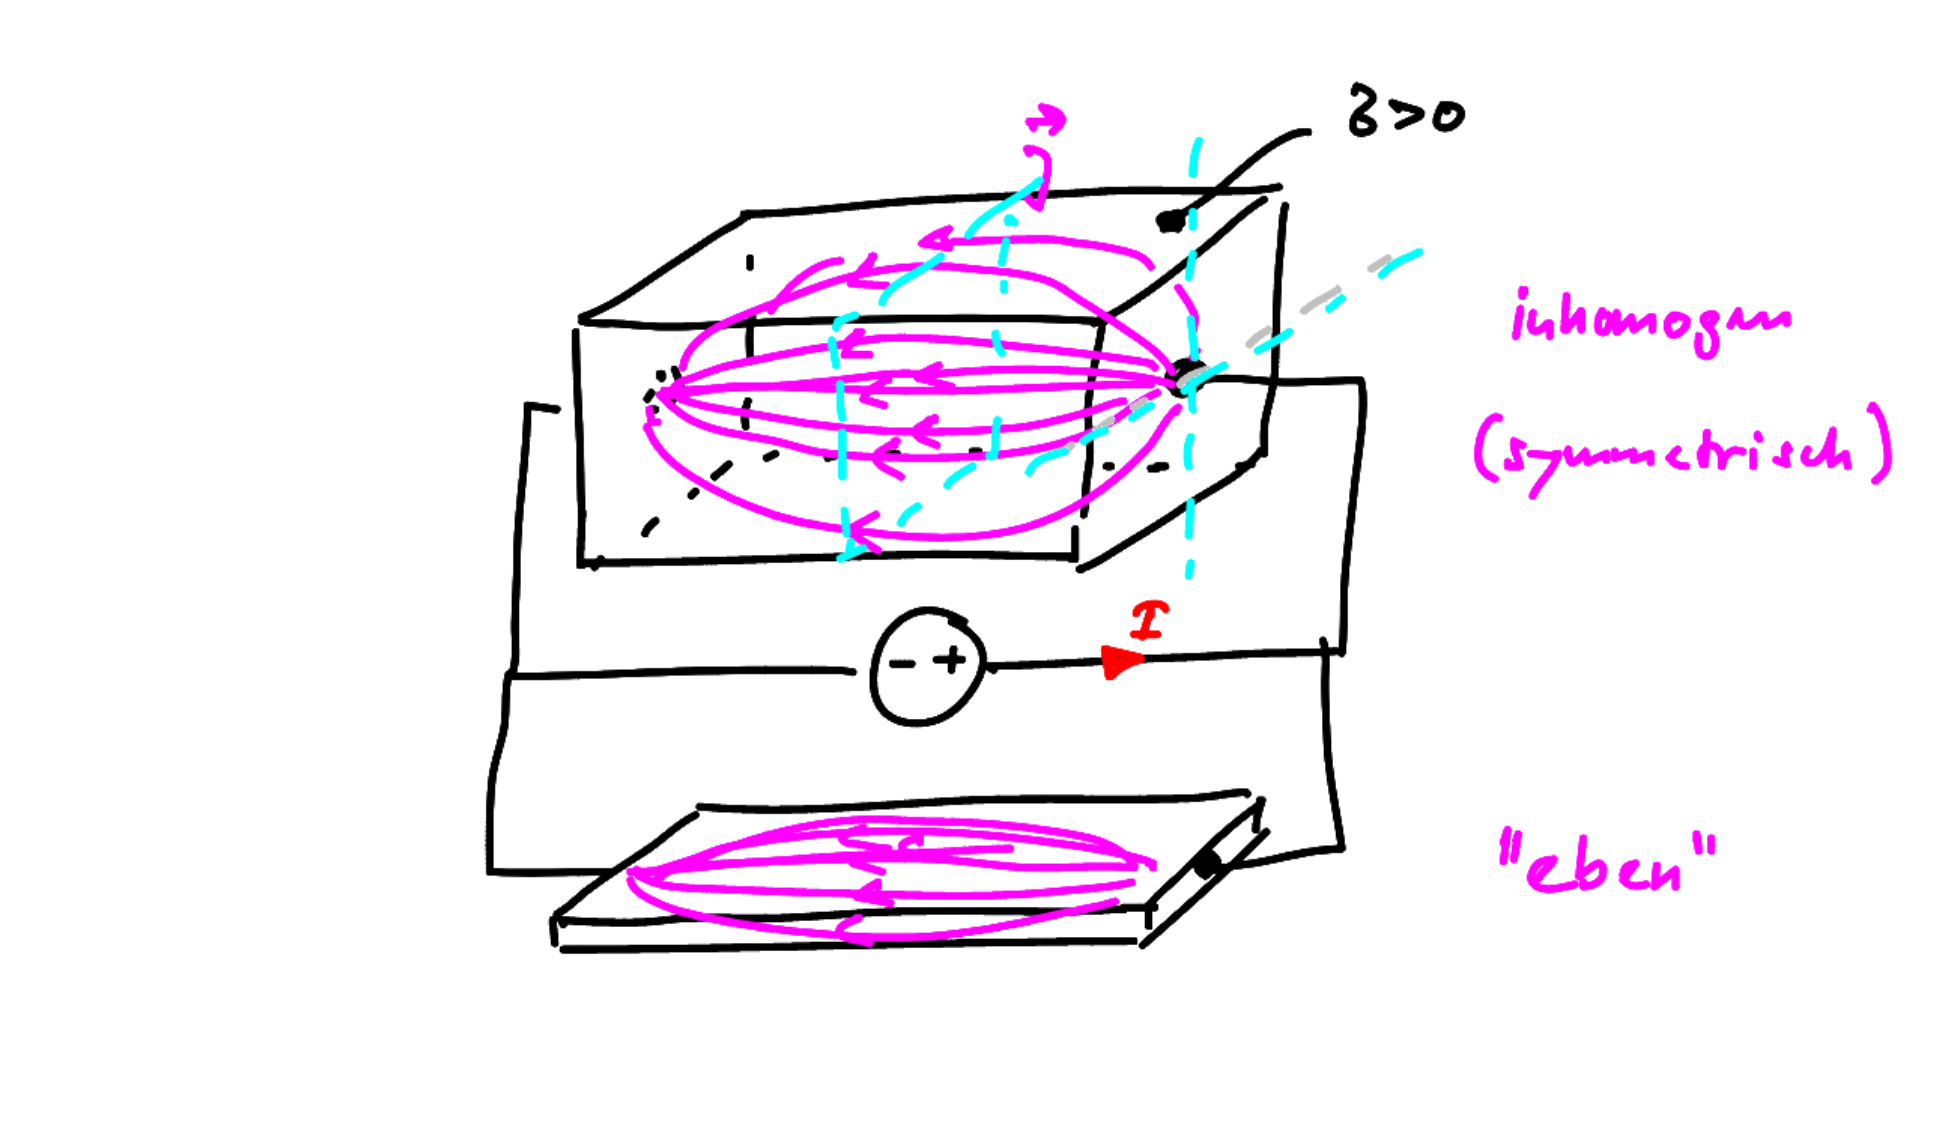 J⃗
ϭ>0
inhomogen
(symmetrisch)
I
- +
"eben"